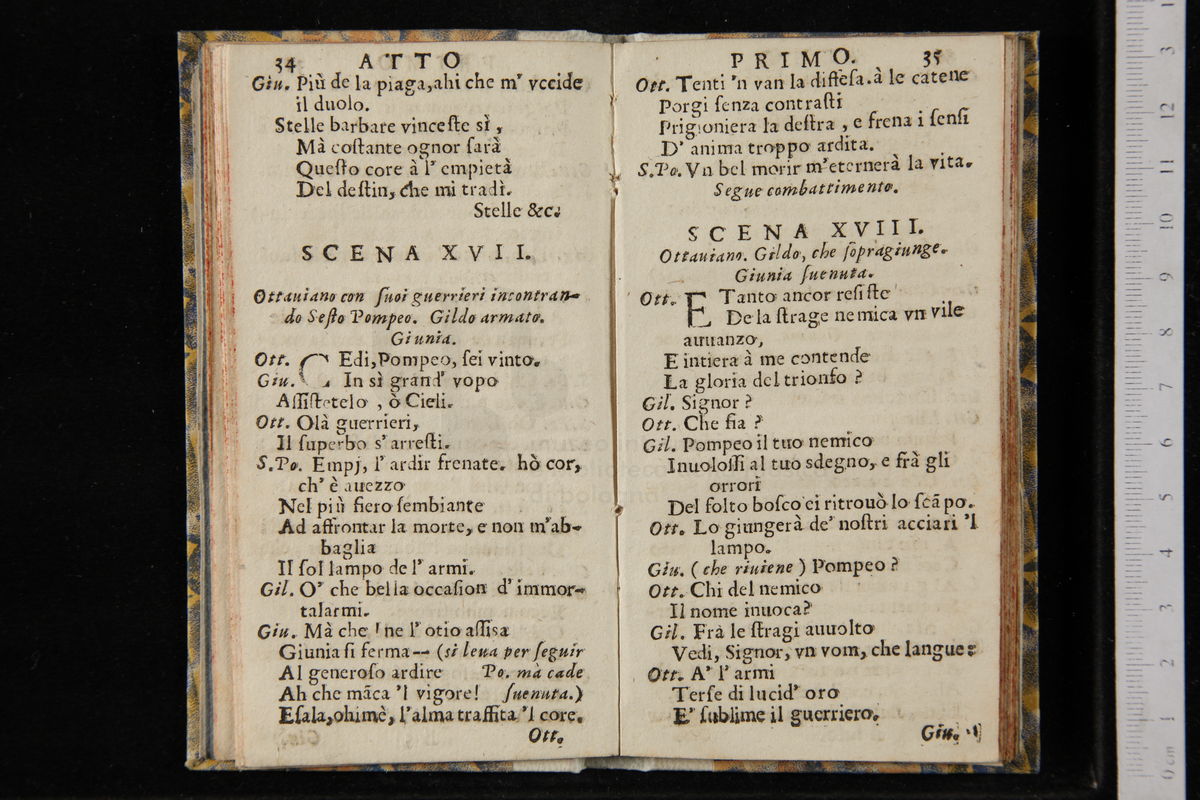 34 ATTO
Giu. Più de la piaga, ahi che m' vccide
il duolo.
Stelle barbare vinceſte sì,
Mà coſtante ognor ſarà
Queſto core à l' empietà
Del deſtin, che mi tradì.
Stelle &c.
SCENA XVII.
Ottauiano con ſuoi guerrieri incontran-
do Seſto Pompeo. Gildo armato.
Giunia.
Ott. CEdi, Pompeo, ſei vinto.
Giu. In sì grand' vopo
Aſſiſtetelo, ò Cieli.
Ott. Olà guerrieri,
Il ſuperbo s' arreſti.
S.Po. Empj, l' ardir frenate. hò cor,
ch' è auezzo
Nel più fiero ſembiante
Ad affrontar la morte, e non m'ab-
baglia
Il ſol lampo de l' armi.
Gil. O' che bella occaſion d' immor-
talarmi.
Giu. Mà che 'ne l' otio aſſiſa
Giunia ſi ferma-- (si leua per ſeguir
Al generoſo ardire Po. mà cade
Ah che mãca 'l vigore! ſuenuta.)
Eſala, ohimè, l'alma traffita 'l core.
Ott.
PRIMO. 35
Ott. Tenti 'n van la diffeſa. à le catene
Porgi ſenza contraſti
Prigioniera la deſtra, e frena i ſenſi
D' anima troppo ardita.
S.Po. Vn bel morir m'eternerà la vita.
Segue combattimento.
SCENA XVIII.
Ottauiano. Gildo, che ſopragiunge.
Giunia ſuenuta.
Ott. E Tanto ancor reſiſte
De la ſtrage nemica vn vile
auuanzo,
E intiera à me contende
La gloria del trionfo?
Gil. Signor?
Ott. Che fia?
Gil. Pompeo il tuo nemico
Inuoloſſi al tuo sdegno, e frà gli
orrori
Del folto boſco ei ritrouò lo ſcãpo.
Ott. Lo giungerà de' noſtri acciari 'l
lampo.
Giu. (che riuiene) Pompeo?
Ott. Chi del nemico
Il nome inuoca?
Gil. Frà le ſtragi auuolto
Vedi, Signor, vn vom, che langue:
Ott. A' l' armi
Terſe di lucid' oro
E' ſublime il guerriero.
Giu.